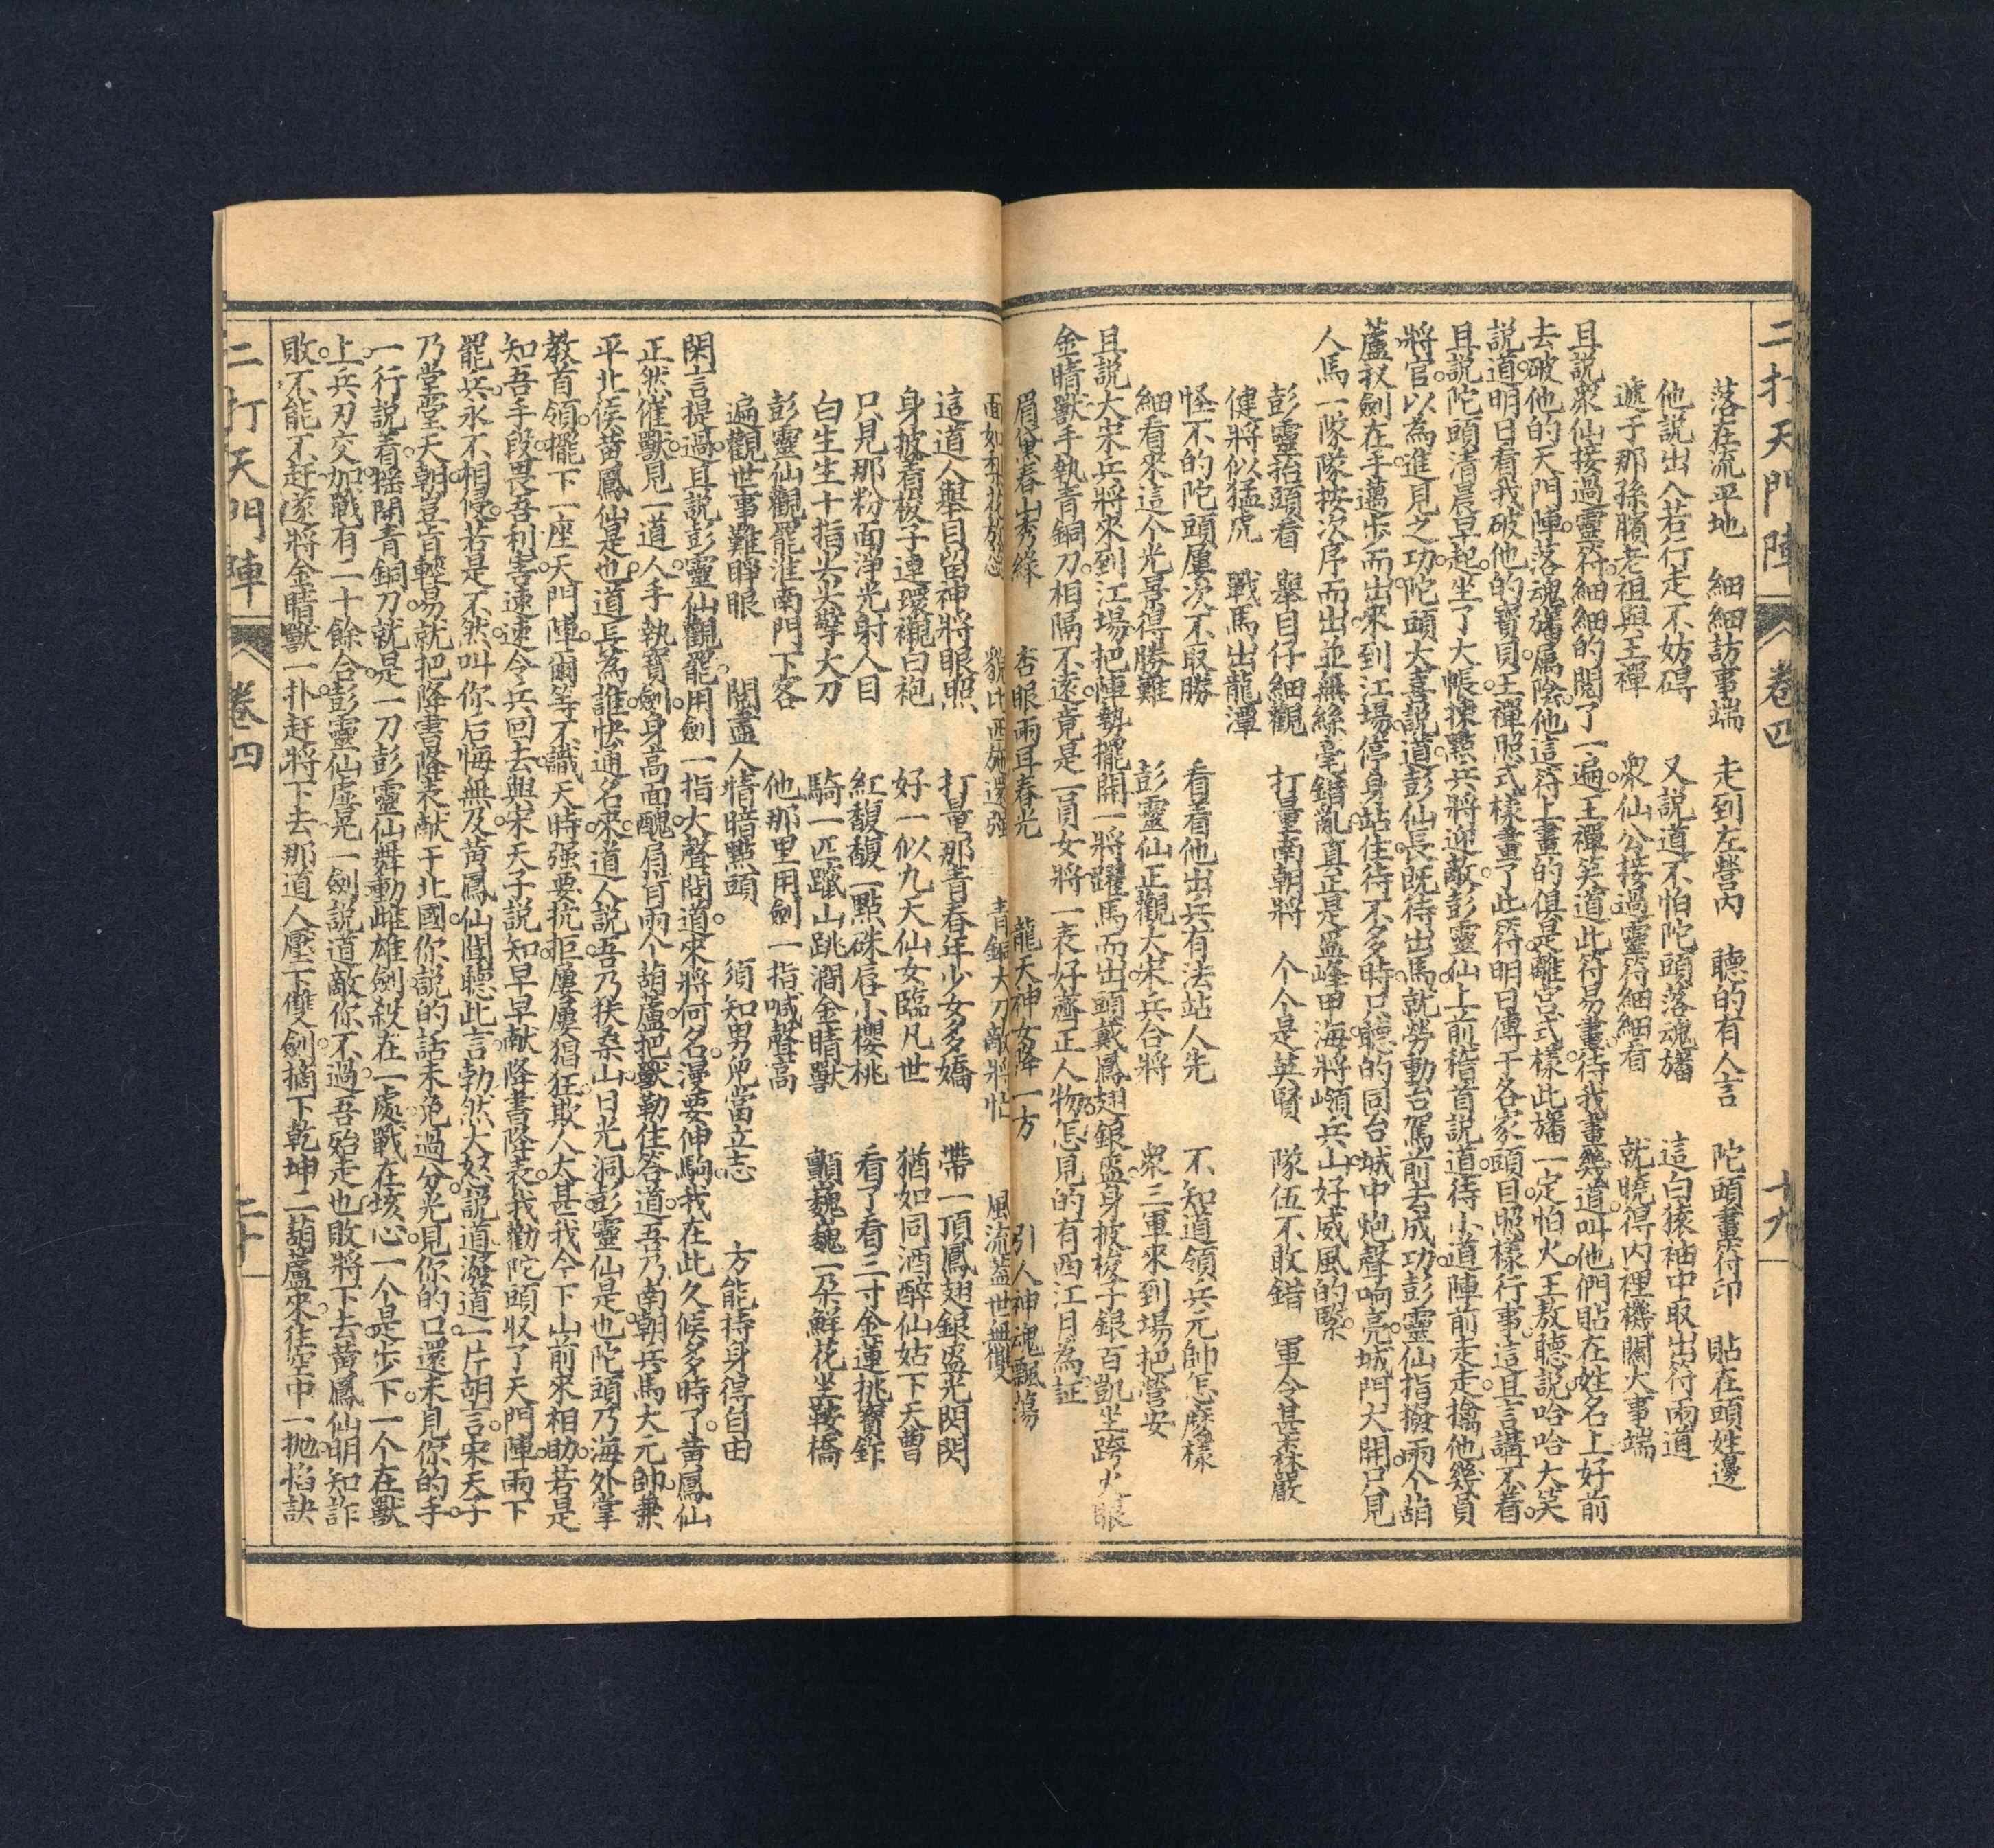 二打天門陣 卷四 十九
落在流平地 細細訪事端 走到左營內 聽的有人言 陀頭畫符印 貼在頭姓邊
他說出入若行走不妨碍 又說道不怕陀頭落魂旛 這白猿袖中取出符兩道
遞于那孫臏老祖與王禪 衆仙公接過靈符細細看 就曉得內裡機關大事端
且說衆仙接過靈符細細的閱了一遍王禪笑道此符易畫待我畫幾道叫他們貼在姓名上好前
去破他的天門陣落魂旛属陰他這符上畫的俱是離宮式樣此旛一定怕火王敖聽說哈哈大笑
說道明日看我破他的寶貝王禪照式樣畫了此符明日傳于各家頭目照樣行事這且言講不着
且說陀頭清晨早起坐了大帳揀點兵將迎敵彭靈仙上前稽首說道待小道陣前走走擒他幾員
將官以為進見之功陀頭大喜說道彭仙長既待出馬就勞動台駕前去成功彭靈仙指撥兩个葫
蘆扠劍在手邁步而出來到江場停身站住待不多時只聽的同台城中炮聲响亮城門大開只見
人馬一隊隊按次序而出並無絲毫錯亂真正是盔峰甲海將嶺兵山好威風的緊
彭靈抬頭看 舉目仔細觀 打量南朝將 个个是英賢 隊伍不敢錯 軍令甚森嚴
健將似猛虎 戰馬出龍潭
怪不的陀頭屢次不取勝 看着他出兵有法站人先 不知道領兵元帥怎麼樣
細看來這个光景得勝難 彭靈仙正觀大宋兵合將 衆三軍來到場把營安
且說大宋兵將來到江場把陣勢擺開一將躍馬而出頭戴鳳翅銀盔身披梭子銀百凱坐跨火眼
金睛獸手執青銅刀相隔不遠竟是一員女將一表好齊正人物怎見的有西江月為証
眉黛春山秀綠 杏眼兩耳春光 龍天神女降一方 引人神魂飄蕩
面如梨花放蕊 貌比西施還强 青銅大刀敵將忙 風流蓋世無雙
這道人舉目留神將眼照 打量那青春年少女多嬌 帶一頂鳳翅銀盔光閃閃
身披着梭子連環襯白袍 好一似九天仙女臨凡世 猶如同酒醉仙姑下天曹
只見那粉面淨光射人目 紅馥馥一點硃唇小櫻桃 看了看三寸金蓮挑寶鐙
白生生十指尖尖擎大刀 騎一匹躥山跳澗金睛獸 顫巍巍一朶鮮花坐鞍橋
彭靈仙觀罷淮南門下客 他那里用劍一指喊聲高
遍觀世事難睜眼 閱盡人情暗點頭 須知男兒當立志 方能持身得自由
閑言提過且說彭靈仙觀罷用劍一指大聲問道來將何名漫要伸駒我在此久候多時了黃鳳仙
正然催獸見一道人手執寶劍身高面醜肩背兩个葫蘆把獸勒住答道吾乃南朝兵馬大元帥兼
平北侯黃鳳仙是也道長為誰快通名來道人說吾乃扶桑山日光洞彭靈仙是也陀頭乃海外掌
教首領擺下一座天門陣爾等不識天時强要抗拒屢屢猖狂欺人太甚我今下山前來相助若是
知吾手段畏吾利害速速令兵回去與宋天子說知早早献降書降表我勸陀頭収了天門陣兩下
罷兵永不相侵若是不然叫你后悔無及黃鳳仙聞聽此言勃然大怒說道潑道一片胡言宋天子
乃堂堂天朝豈肯輕易就把降書降表献于北國你說的話未免過分光見你的口還未見你的手
一行說着搖開青銅刀就是一刀彭靈仙舞動雌雄劍殺在一處戰在垓心一个是步下一个在獸
上兵刃交加戰有二十餘合彭靈仙虛晃一劍說道敵你不過吾殆走也敗將下去黃鳳仙明知詐
敗不能不赶遂將金睛獸一扑赶將下去那道人壓下雙劍摘下乾坤二葫蘆來往空中一拋掐訣
二打天門陣 卷四 二十